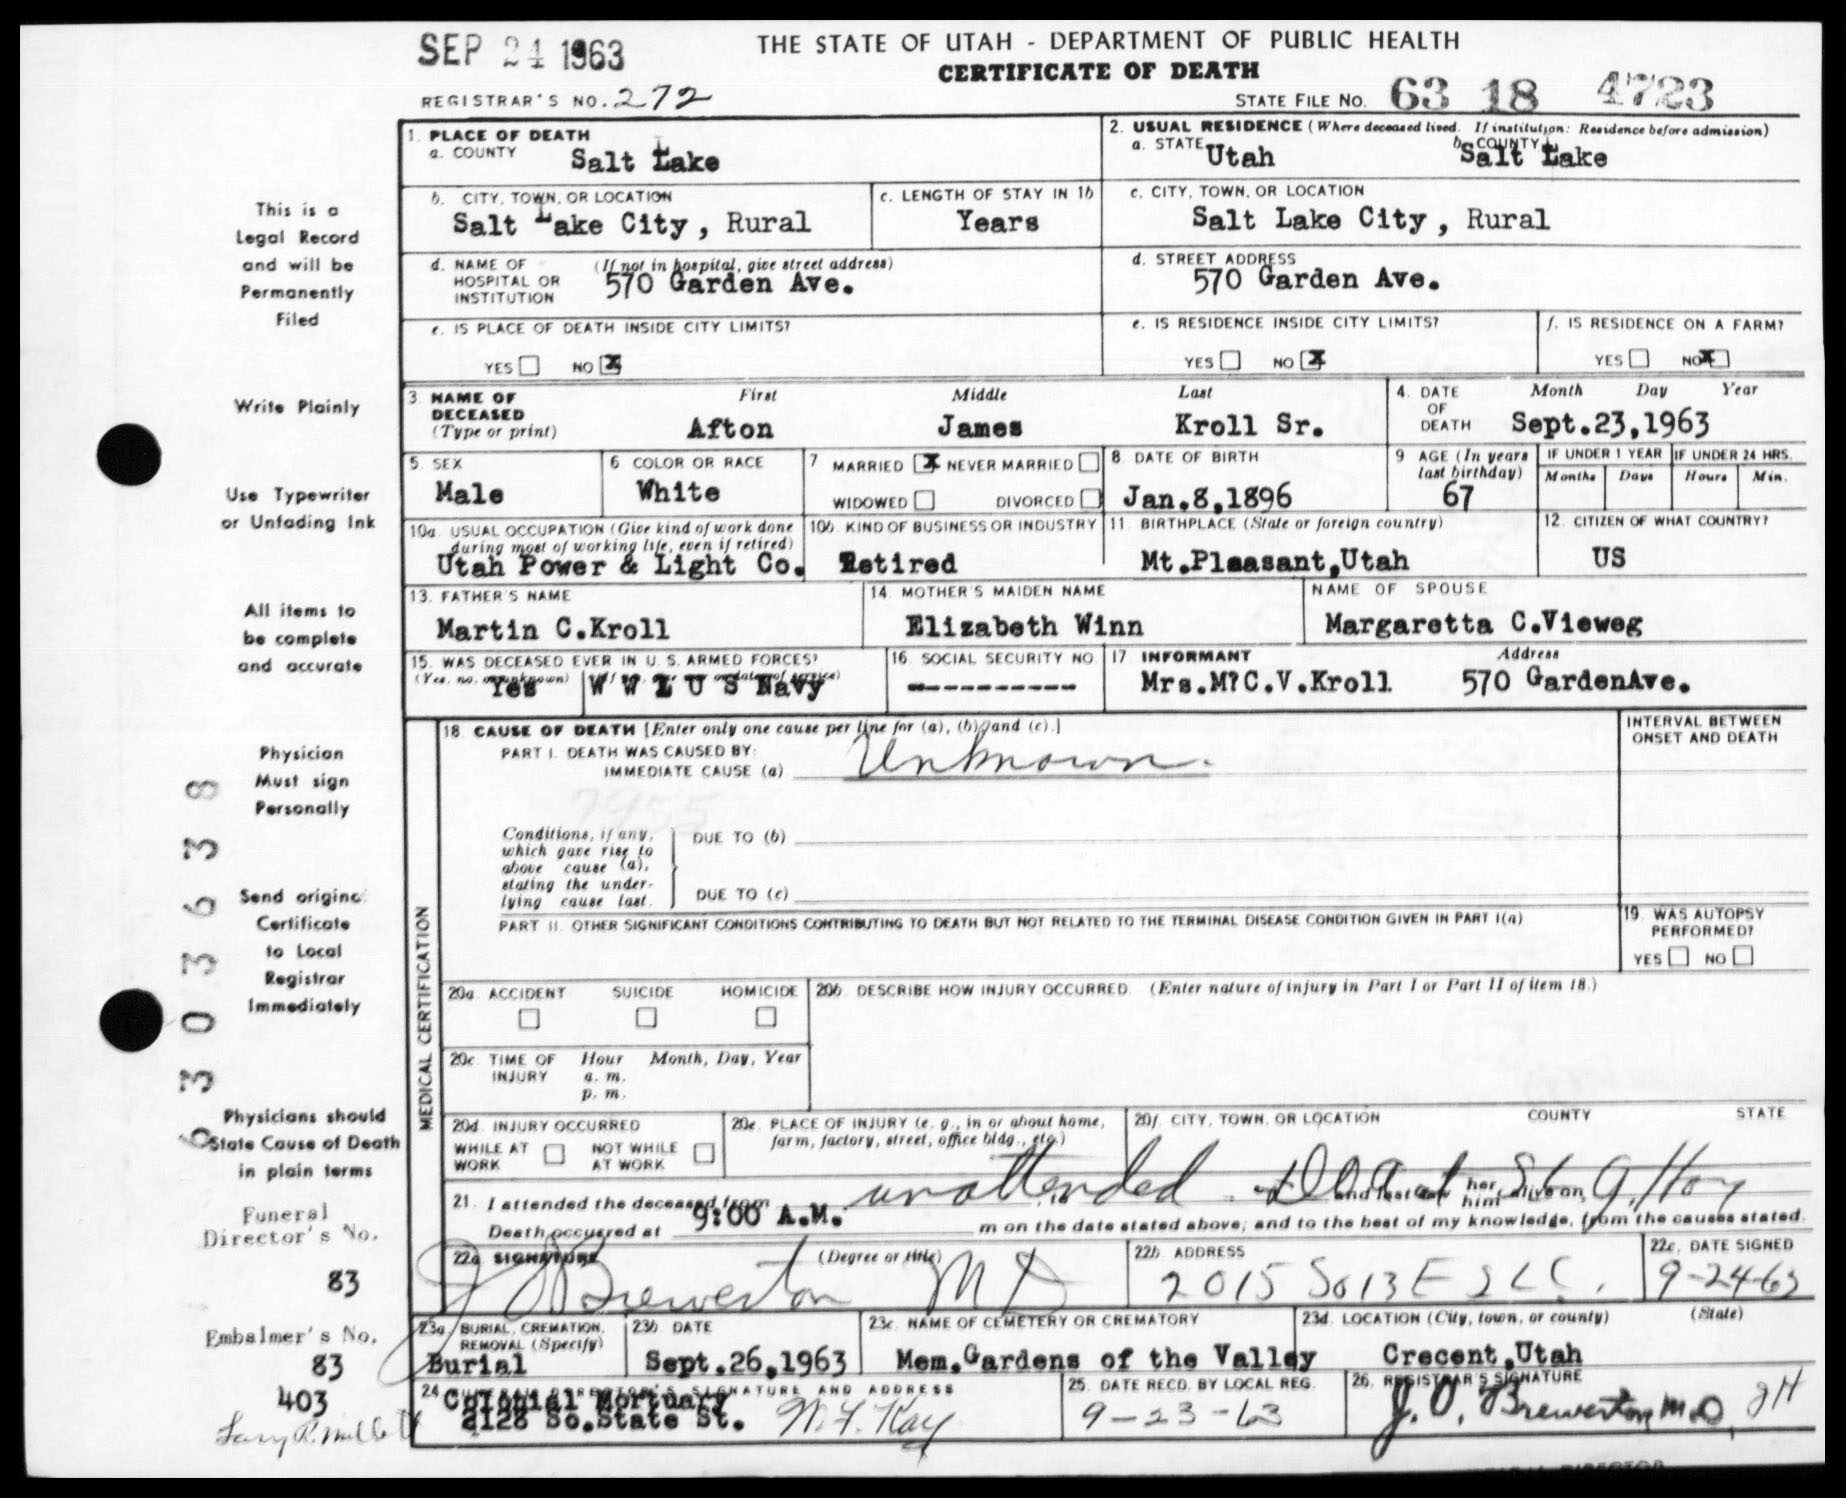 SEP 24 1963
THE STATE OF UTAH - DEPARTMENT OF PUBLIC HEALTH
CERTIFICATE OF DEATH
REGISTRAR'S NO. 272
STATE FILE NO. 63 18 4723
1. PLACE OF DEATH
a. COUNTY Salt Lake
2. USUAL RESIDENCE (Where deceased lived. If institution: Residence before admission)
a. STATE Utah b. COUNTY Salt Lake
b. CITY, TOWN, OR LOCATION
Salt Lake City, Rural
c. LENGTH OF STAY IN 1b
Years
c. CITY, TOWN, OR LOCATION
Salt Lake City, Rural
d. NAME OF HOSPITAL OR INSTITUTION (If not in hospital, give street address)
570 Garden Ave.
d. STREET ADDRESS
570 Garden Ave.
e. IS PLACE OF DEATH INSIDE CITY LIMITS?
YES NO X
e. IS RESIDENCE INSIDE CITY LIMITS?
YES NO X
f. IS RESIDENCE ON A FARM?
YES NO X
3. NAME OF DECEASED (Type or print)
First Middle Last
Afton James Kroll Sr.
4. DATE OF DEATH Month Day Year
Sept.23,1963
5. SEX
Male
6 COLOR OR RACE
White
7 MARRIED X NEVER MARRIED
WIDOWED DIVORCED
8. DATE OF BIRTH
Jan.8,1896
9 AGE (In years last birthday)
67
IF UNDER 1 YEAR
Months Days
IF UNDER 24 HRS.
Hours Min.
10a. USUAL OCCUPATION (Give kind of work done during most of working life, even if retired)
Utah Power & Light Co.
10b. KIND OF BUSINESS OR INDUSTRY
Retired
11. BIRTHPLACE (State or foreign country)
Mt.Pleasant,Utah
12. CITIZEN OF WHAT COUNTRY?
US
13. FATHER'S NAME
Martin C.Kroll
14. MOTHER'S MAIDEN NAME
Elizabeth Winn
NAME OF SPOUSE
Margaretta C.Vieweg
15. WAS DECEASED EVER IN U. S. ARMED FORCES?
Yes W W I U S Navy
16. SOCIAL SECURITY NO.
----------
17 INFORMANT Address
Mrs.M?C.V.Kroll 570 GardenAve.
MEDICAL CERTIFICATION
18. CAUSE OF DEATH [Enter only one cause per line for (a), (b), and (c).]
PART I. DEATH WAS CAUSED BY:
IMMEDIATE CAUSE (a) Unknown.
INTERVAL BETWEEN ONSET AND DEATH
7955
Conditions, if any, which gave rise to above cause (a), stating the underlying cause last.
DUE TO (b)
DUE TO (c)
PART II. OTHER SIGNIFICANT CONDITIONS CONTRIBUTING TO DEATH BUT NOT RELATED TO THE TERMINAL DISEASE CONDITION GIVEN IN PART I(a)
19. WAS AUTOPSY PERFORMED?
YES NO
20a ACCIDENT SUICIDE HOMICIDE
20b. DESCRIBE HOW INJURY OCCURRED. (Enter nature of injury in Part I or Part II of item 18.)
20c. TIME OF INJURY Hour Month, Day, Year
a. m.
p. m.
20d. INJURY OCCURRED
WHILE AT WORK NOT WHILE AT WORK
20e. PLACE OF INJURY (e. g., in or about home, farm, factory, street, office bldg., etc.)
20f. CITY, TOWN, OR LOCATION COUNTY STATE
21. I attended the deceased from unattended to and last saw her him alive on
Death occurred at 9:00 A.M. m on the date stated above; and to the best of my knowledge, from the causes stated.
22a SIGNATURE (Degree or title)
J O Brewerton MD
22b. ADDRESS
2015 So 13 E SLC.
22c. DATE SIGNED
9-24-63
23a. BURIAL, CREMATION, REMOVAL (Specify)
Burial
23b. DATE
Sept.26,1963
23c. NAME OF CEMETERY OR CREMATORY
Mem.Gardens of the Valley
23d. LOCATION (City, town, or county) (State)
Crecent,Utah
24. FUNERAL DIRECTOR'S SIGNATURE AND ADDRESS
Colonial Mortuary
2128 So.State St. W. F. Kay
25. DATE RECD. BY LOCAL REG.
9-23-63
26. REGISTRAR'S SIGNATURE
J. O. Brewerton M.D. JH
This is a
Legal Record
and will be
Permanently
Filed
Write Plainly
Use Typewriter
or Unfading Ink
All items to
be complete
and accurate
Physician
Must sign
Personally
Send original
Certificate
to Local
Registrar
Immediately
Physicians should
State Cause of Death
in plain terms
Funeral
Director's No.
83
Embalmer's No.
83
403